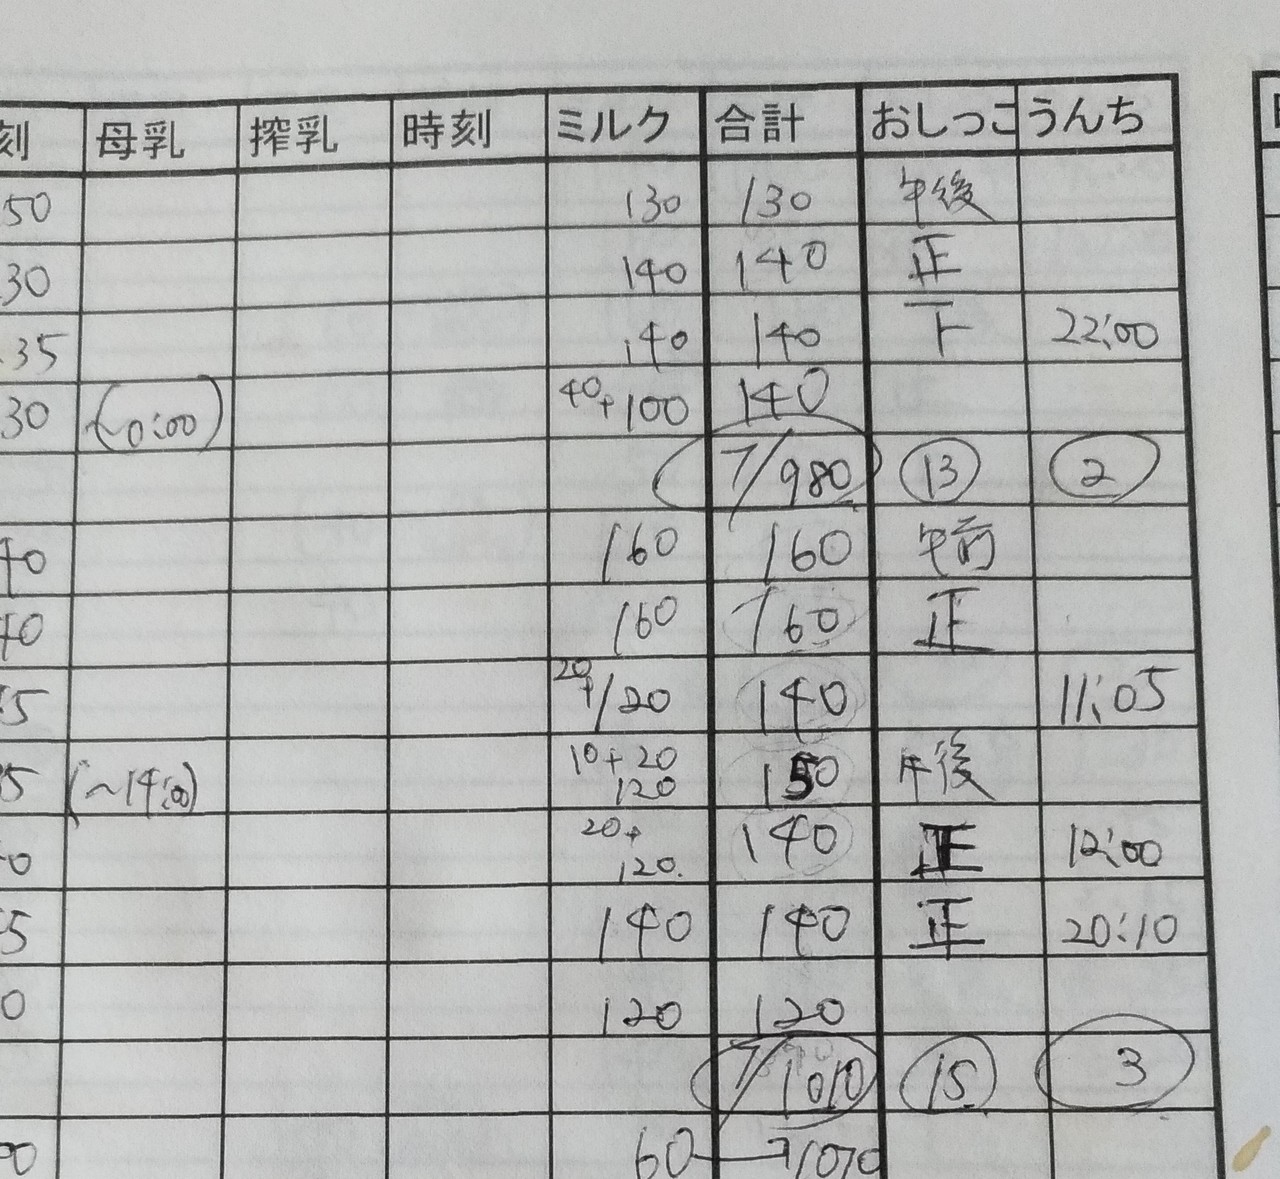 刻 母乳 搾乳 時刻 ミルク 合計 おしっこ うんち
50 130 130 午後
30 140 140 正
35 140 140 下 22:00
30 (~0:00) 40+100 140
7/980 13 2
40 160 160 午前
40 160 160 正
5 20+120 140 11:05
5 (~14:00) 10+20 120 150 午後
0 20+120. 140 正 12:00
5 140 140 正 20:10
0 120 120
7/1010 15 3
00 60→1070